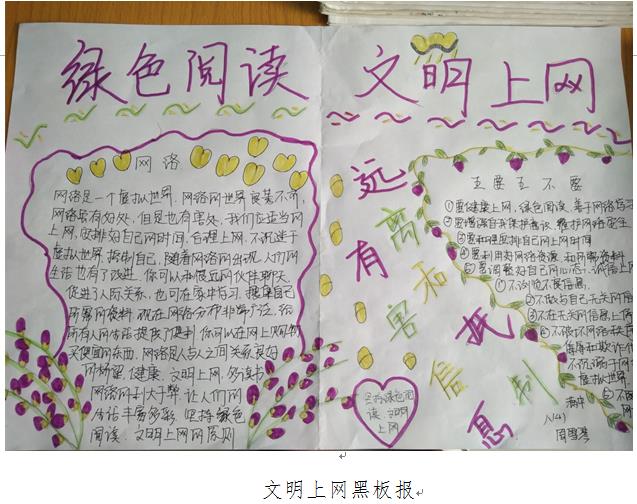 绿色阅读 文明上网
网络
网络是一个虚拟世界,网络网世界良莠不齐,
网络是有好处,但是也有害处,我们应文明
上网,安排好自己网时间,合理上网,不沉迷于
虚拟世界,控制自己,随着网络网出现,人们网
生活也有了改进,你可以和很远网伙伴聊天,
促进了人际关系,也可在家中学习,搜集自己
所需网资料,现在网络分布非常广泛,给
所有人网生活提供了便利,你可以在网上购物,
买便宜网东西,网络是人与人之间关系良好
网桥梁,健康、文明上网,多读书
网络网利大于弊,让人们网
生活丰富多彩,坚持绿色
阅读、文明上网网原则
远离有害信息
和抵制
坚持绿色阅
读、文明
上网
五要五不要
①要健康上网,绿色阅读,善于网络学习
②要增强自我保护意识,维护网络安全
③要合理安排自己网上网时间
④要利用好网络资源
⑤要调整好自己网心态,诚信上网
①不浏览不良信息,
②不做与自己无关网
③不在无关网信息上
④不破坏网络秩序
侮辱和欺诈他
不沉溺于网
虚拟世界
八(4)
文明上网黑板报